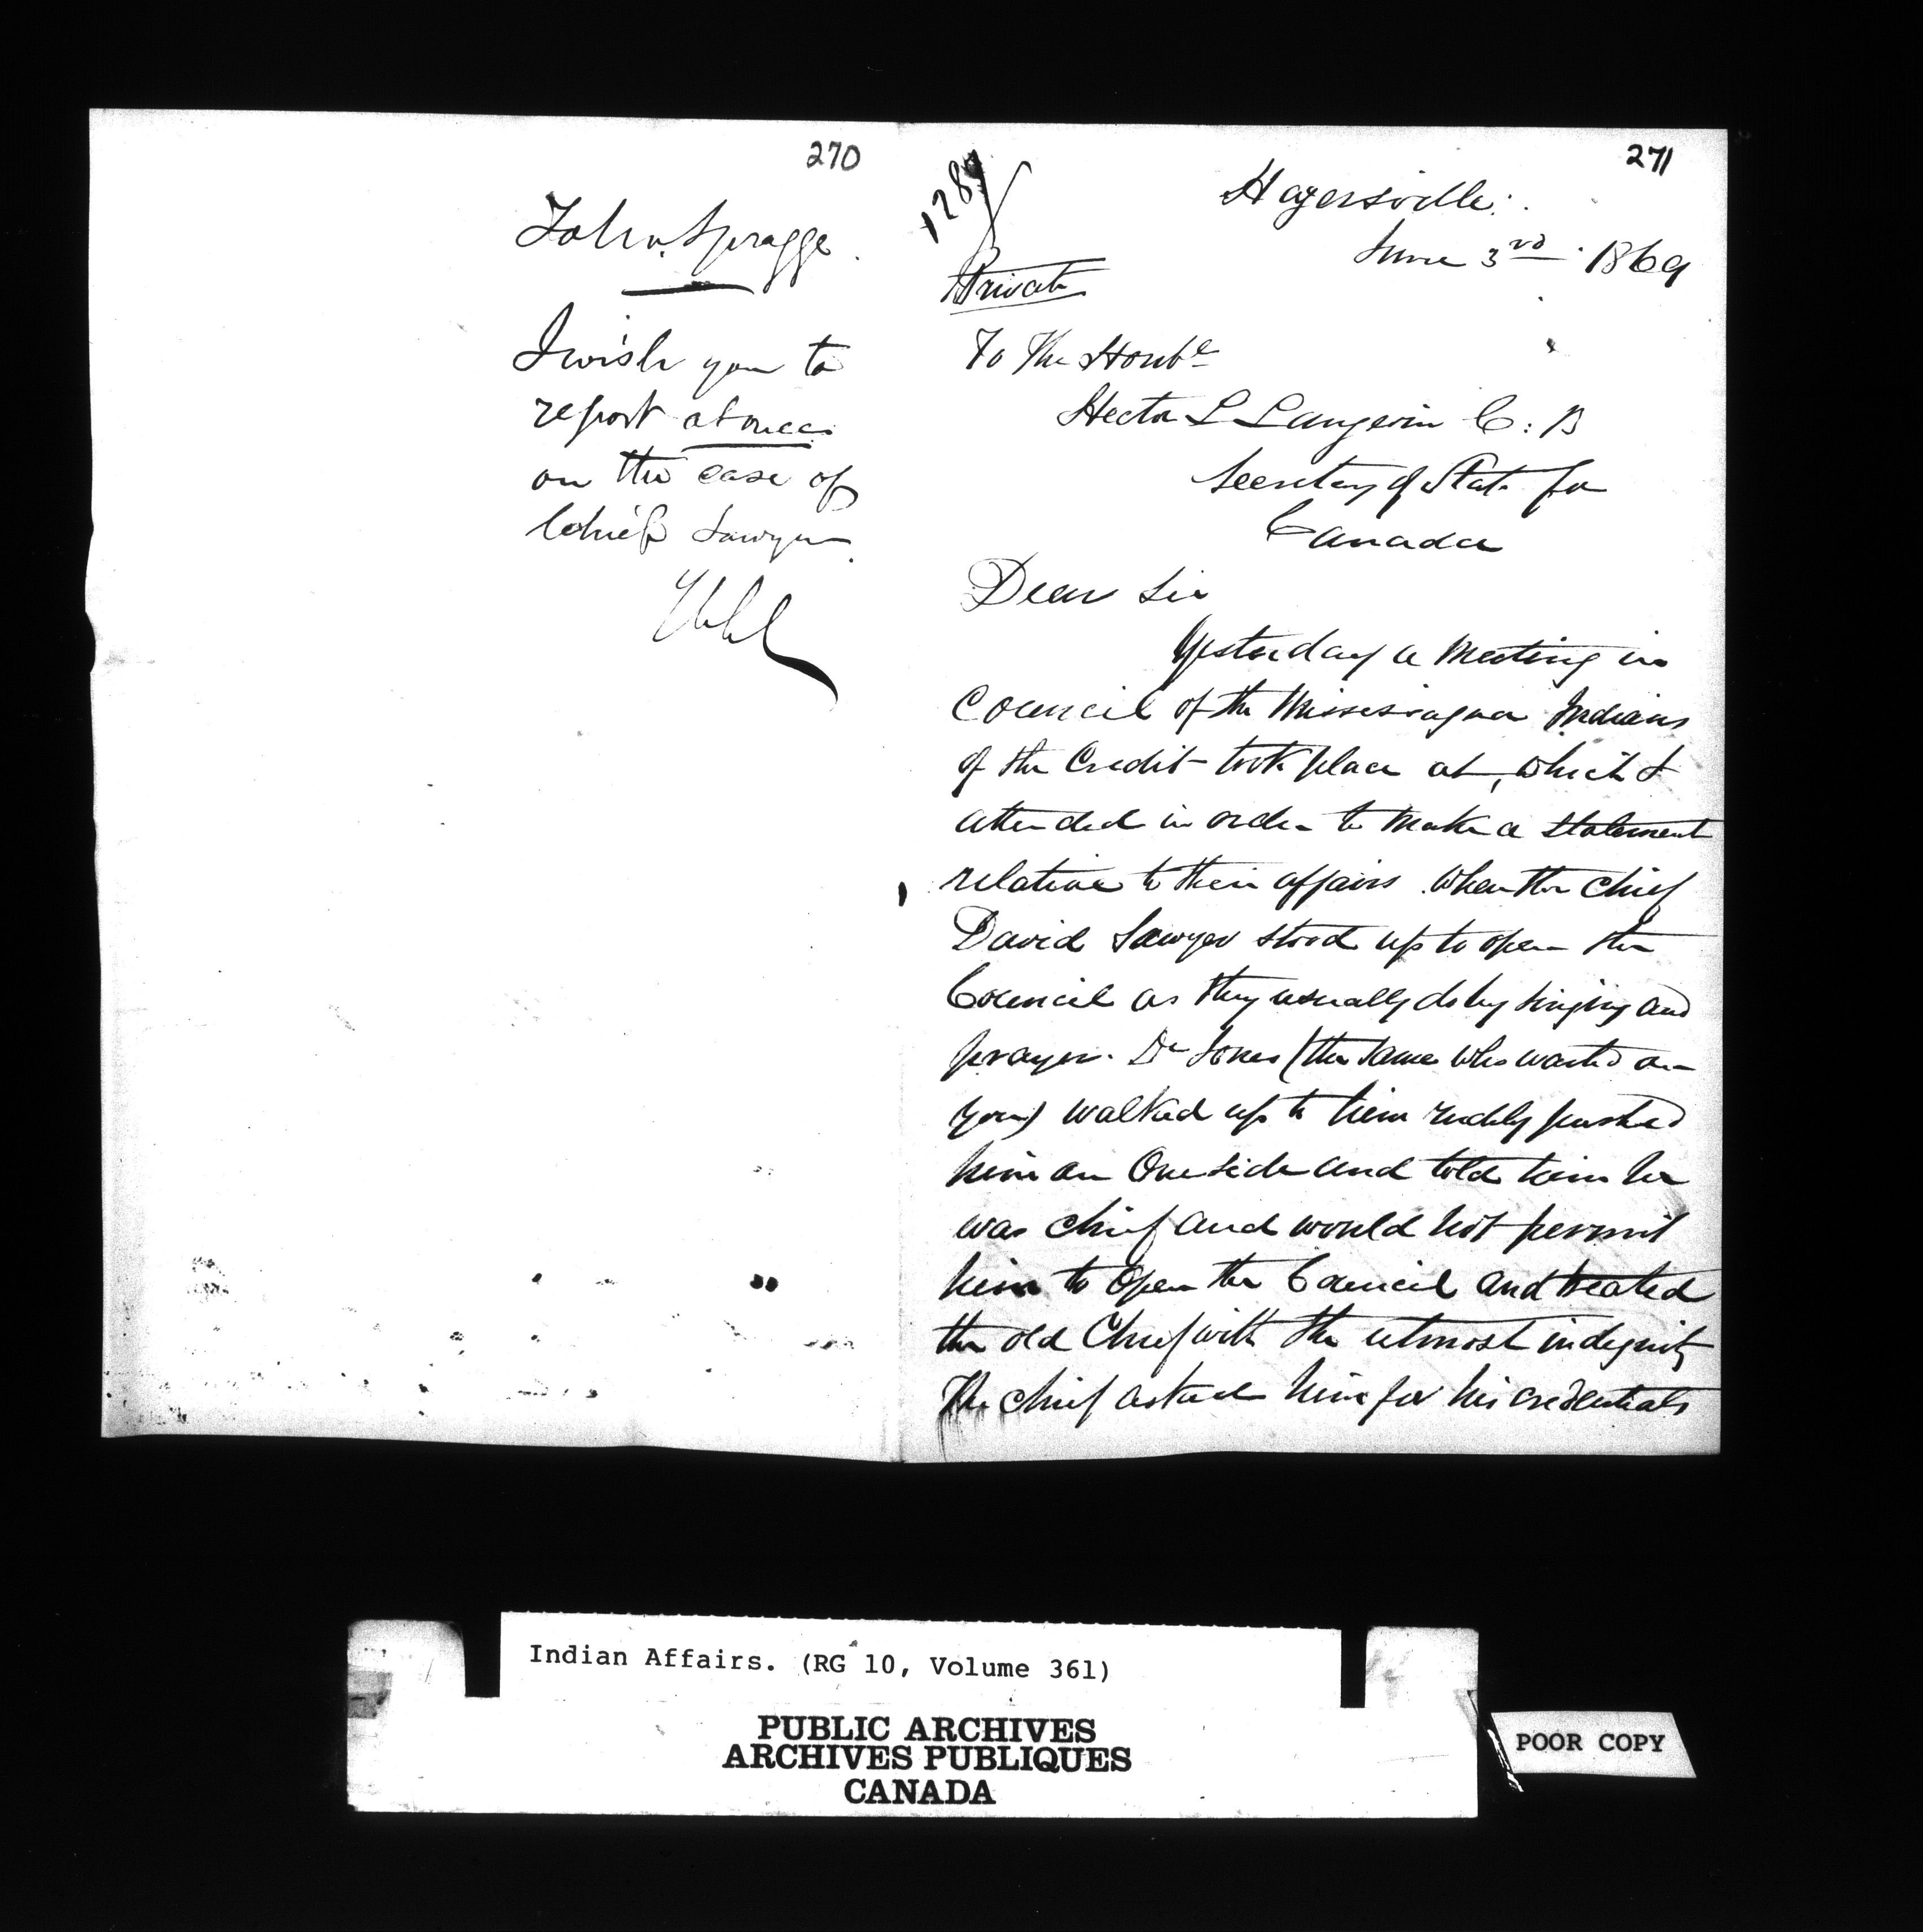 270
John Spragge
I wish you to
report at once
on the case of
Chief Sawyer.
HLL
271
128
Hagersville.
June 3rd 1869
Private
To The Honble
Hector L Langevin C: B
Secretary of State for
Canada
Dear Sir
Yesterday a Meeting in
Council of the Missessagua Indians
of the Credit took place at, which I
attended in order to Make a statement
relative to their affairs. When the Chief
David Sawyer stood up to open the
Council as they usually do by singing and
prayer. Dr Jones (the same who waited on
you) walked up to him rudely pushed
him on One side and told him he
was chief and would not permit
him to Open the Council and treated
the old Chief with the utmost indignity
The chief asked him for his credentials
Indian Affairs. (RG 10, Volume 361)
PUBLIC ARCHIVES
ARCHIVES PUBLIQUES
CANADA
POOR COPY